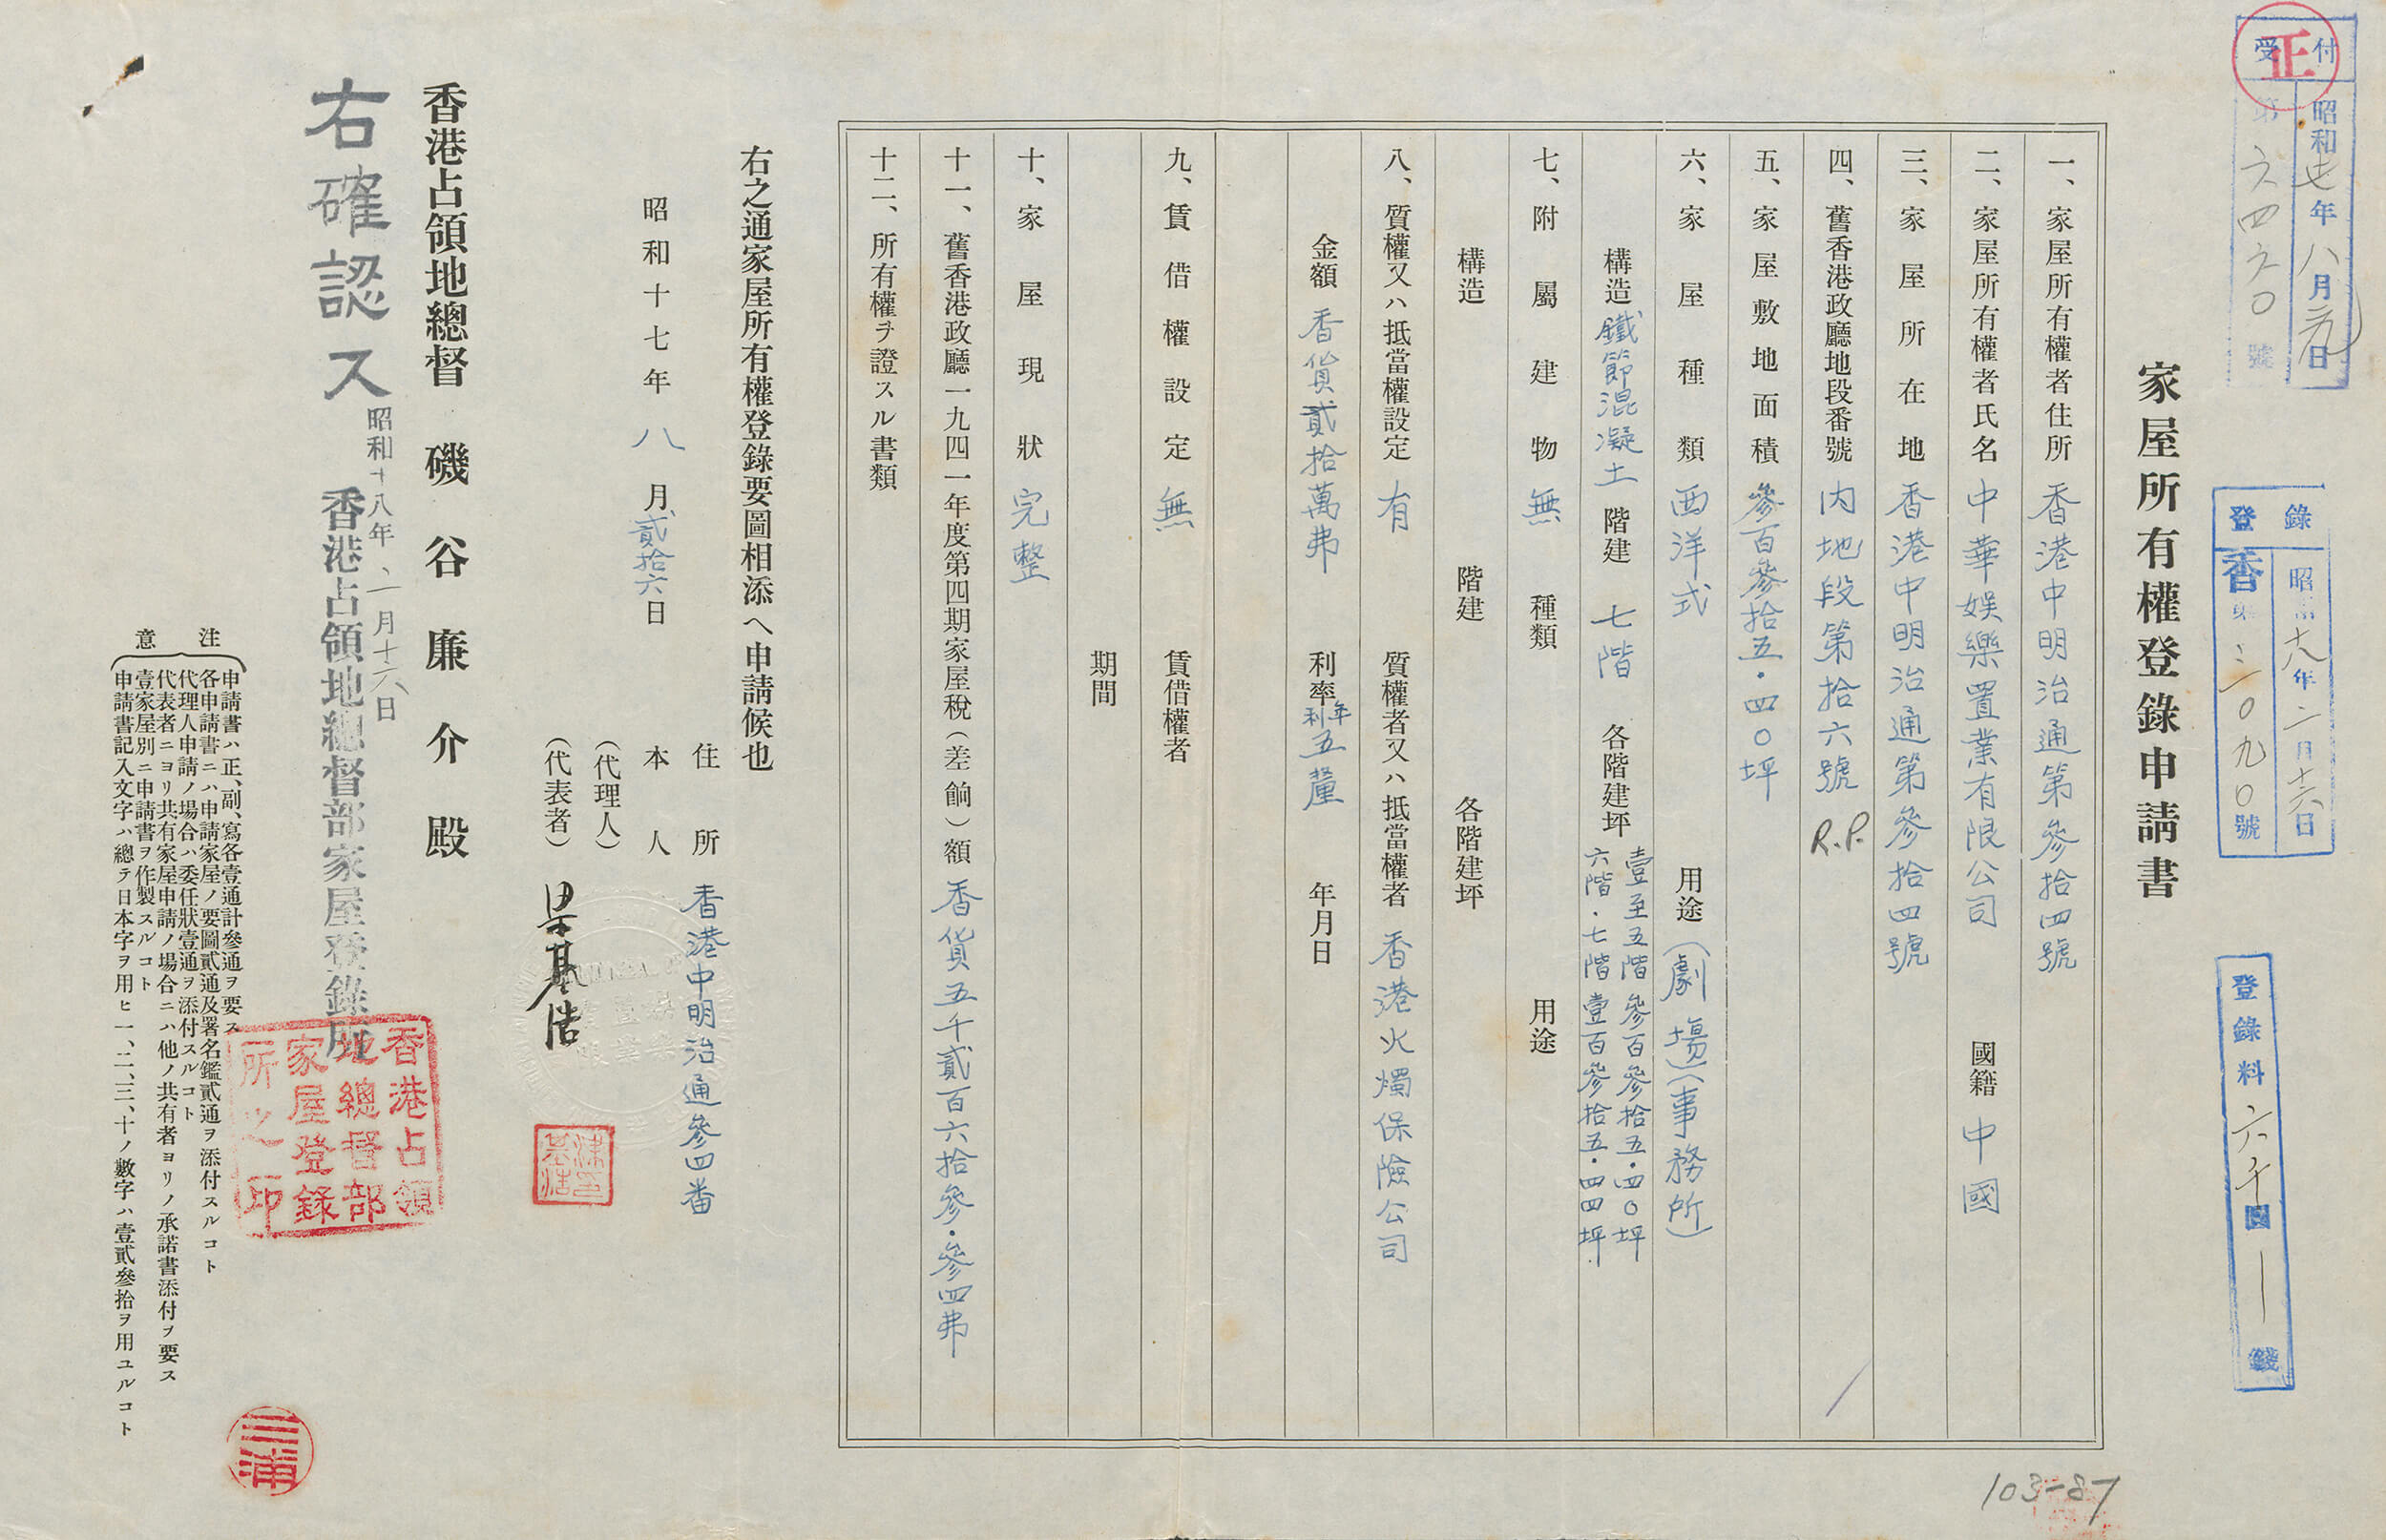 正
受付
昭和七年八月元日
第六四六〇號
登錄
昭和十八年二月十六日
香第三一〇九〇號
登錄料六千圓一錢
家屋所有權登錄申請書
一、家屋所有權者住所 香港中明治通第參拾四號
二、家屋所有權者氏名 中華娛樂置業有限公司 國籍 中國
三、家屋所在地 香港中明治通第參拾四號
四、舊香港政廳地段番號 內地段第拾六號 R.P.
五、家屋敷地面積 參百參拾五·四〇坪
六、家屋種類 西洋式 用途(劇場)(事務所)
構造 鐵節混凝土 階建 七階 各階建坪 壹至五階 參百參拾五·四〇坪
六階·七階 壹百參拾五·四四坪
七、附屬建物 無 種類 用途
構造 階建 各階建坪
八、質權又ハ抵當權設定 有 質權者又ハ抵當權者 香港火燭保險公司
金額 香貨貳拾萬弗 利率 年利五釐 年月日
九、賃借權設定 無 賃借權者
期間
十、家屋現狀 完整
十一、舊香港政廳一九四一年度第四期家屋稅(差餉)額 香貨五千貳百六拾參·參四弗
十二、所有權ヲ證スル書類
右之通家屋所有權登錄要圖相添ヘ申請候也
昭和十七年八月貳拾六日
住所 香港中明治通參四番
本人
(代理人)
(代表者) 梁基浩
香港占領地總督 磯谷廉介殿
右確認ス
昭和十八年二月十六日
香港占領地總督部家屋登錄所
香港占領
地總督部
家屋登錄
所之印
注意
申請書ハ正、副、寫各壹通計參通ヲ要ス
各申請書ニハ申請家屋ノ要圖貳通及署名鑑貳通ヲ添付スルコト
代理人申請ノ場合ハ委任狀壹通ヲ添付スルコト
代表者ニヨリ共有家屋申請ノ場合ニハ他ノ共有者ヨリノ承諾書添付ヲ要ス
壹家屋別ニ申請書ヲ作製スルコト
申請書記入文字ハ總テ日本字ヲ用ヒ一、二、三、十ノ數字ハ壹貳參拾ヲ用ユルコト
三浦
103-87